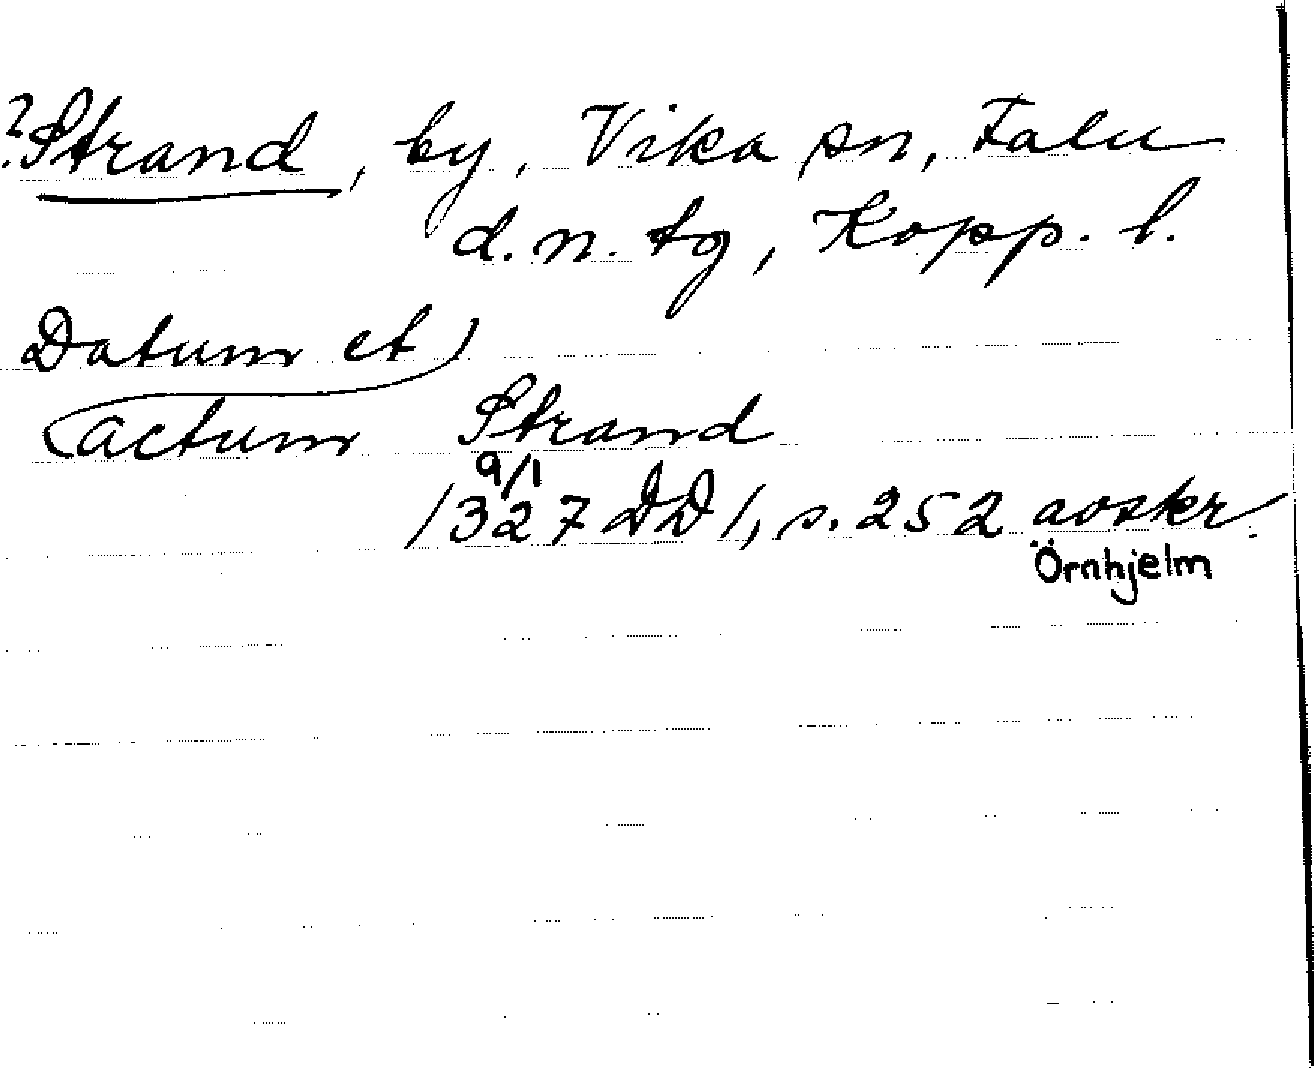 ? Strand, by, Vika sn, Falu
d.n. tg, Kopp. l.
Datum et
actum Strand
9/1
1327 DD 1, s. 252 avskr.
Örnhjelm